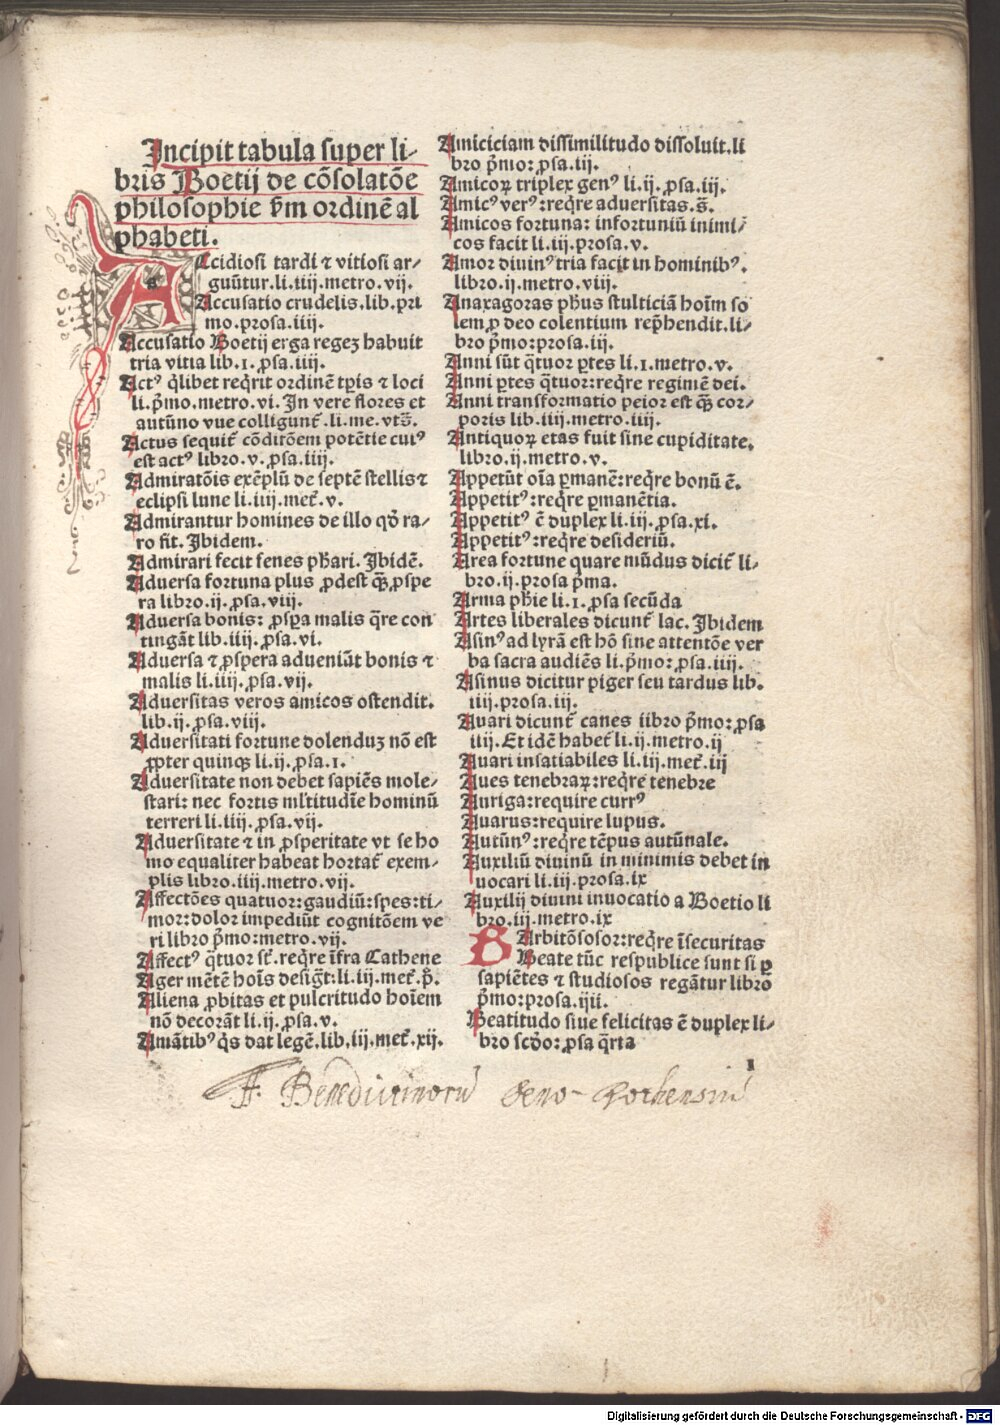 Incipit tabula super li-
bris Boetij de cōsolatōe
philosophie ẜm ordinē al
phabeti.
Accidiosi tardi ⁊ vitiosi ar-
guūtur.li.iiij.metro.vij.
Accusatio crudelis.lib.pri
mo.prosa.iiij.
Accusatio Boetij erga regeꝫ habuit
tria vitia lib.1.ꝓsa.iiij.
Actꝰ q̄libet req̄rit ordinē tp̄is ⁊ loci
li.p̄mo.metro.vi.In vere flores et
autūno vue colligunt᷑.li.me.vts̄.
Actus sequit᷑ cōditōem potētie cuiꝰ
est actꝰ libro.v.ꝓsa.iiij.
Admiratōis exēplū de septē stellis ⁊
eclipsi lune li.iiij.met᷑.v.
Admirantur homines de illo qd̄ ra-
ro fit. Ibidem.
Admirari fecit senes ph̄ari. Ibidē.
Aduersa fortuna plus ꝓdest q̄ꝫ ꝓspe
ra libro.ii.ꝓsa.viij.
Aduersa bonis: ꝓspa malis q̄re con
tingāt lib.iiij.ꝓsa.vi.
Aduersa ⁊ ꝓspera adueniūt bonis ⁊
malis li.iiij.ꝓsa.vij.
Aduersitas veros amicos ostendit.
lib.ij.ꝓsa.viij.
Aduersitati fortune dolenduꝫ nō est
ꝓpter quinqꝫ li.ij.ꝓsa.1.
Aduersitate non debet sapiēs mole-
stari: nec fortis ml̄titudīe hominū
terreri li.iiij.ꝓsa.vij.
Aduersitate ⁊ in ꝓsperitate vt se ho
mo equaliter habeat hortat᷑ exem-
plis libro.iiij.metro.vij.
Affectōes quatuor:gaudiū:spes:ti-
mor:dolor impediūt cognitōem ve
ri libro p̄mo:metro.vij.
Affectꝰ q̄tuor st᷑.req̄re īfra Cathene
Ager mētē hoīs desigt̄:li.iij.met᷑.p̄.
Aliena ꝓbitas et pulcritudo hoīem
nō decorāt li.ij.ꝓsa.v.
Amātibꝰ q̄s dat legē.lib.iij.met᷑.xij.
Amiciciam dissimilitudo dissoluit.li
bro p̄mo:ꝓsa.iij.
Amicoꝝ triplex genꝰ li.ij.ꝓsa.iij.
Amicꝰ verꝰ:req̄re aduersitas.s̄.
Amicos fortuna: infortuniū inimi-
cos facit li.iij.prosa.v.
Amor diuinꝰ tria facit in hominibꝰ.
libro.ij.metro.viij.
Anaxagoras ph̄us stulticiā hoīm so
lem ꝓ deo colentium rep̄hendit.li-
bro p̄mo:prosa.iij.
Anni sūt q̄tuor ꝑtes li.1.metro.v.
Anni ꝑtes q̄tuor:req̄re regimē dei.
Anni transformatio peior est q̄ꝫ cor-
poris lib.iiij.metro.iiij.
Antiquoꝝ etas fuit sine cupiditate.
libro.ij.metro.v.
Appetūt oīa ꝑmanē:req̄re bonū ē.
Appetitꝰ:req̄re ꝑmanētia.
Appetitꝰ ē duplex li.iij.ꝓsa.xi.
Appetitꝰ:req̄re desideriū.
Area fortune quare mūdus dicit᷑ li-
bro.ij.prosa p̄ma.
Arma ph̄ie li.1.ꝓsa secūda
Artes liberales dicunt᷑ lac. Ibidem
Asinꝰ ad lyrā est hō sine attentōe ver
ba sacra audiēs li.p̄mo:ꝓsa.iiij.
Asinus dicitur piger seu tardus lib.
iiij.prosa.iij.
Auari dicunt᷑ canes libro p̄mo:ꝓsa
iiij.Et idē habet᷑ li.ij.metro.ij
Auari insatiabiles li.iij.met᷑.iij
Aues tenebraꝝ:req̄re tenebre
Auriga:require currꝰ
Auarus:require lupus.
Autūnꝰ:req̄re tēpus autūnale.
Auxiliū diuinū in minimis debet in
uocari li.iij.prosa.ix
Auxilij diuini inuocatio a Boetio li
bro.iij.metro.ix
BArbitōsosor:req̄re īsecuritas
Beate tūc respublice sunt si ꝑ
sapiētes ⁊ studiosos regātur libro
p̄mo:prosa.iiij.
Beatitudo siue felicitas ē duplex li-
bro scd̄o:ꝓsa q̄rta
1
Benedictinorū
Digitalisierung gefördert durch die Deutsche Forschungsgemeinschaft - DFG